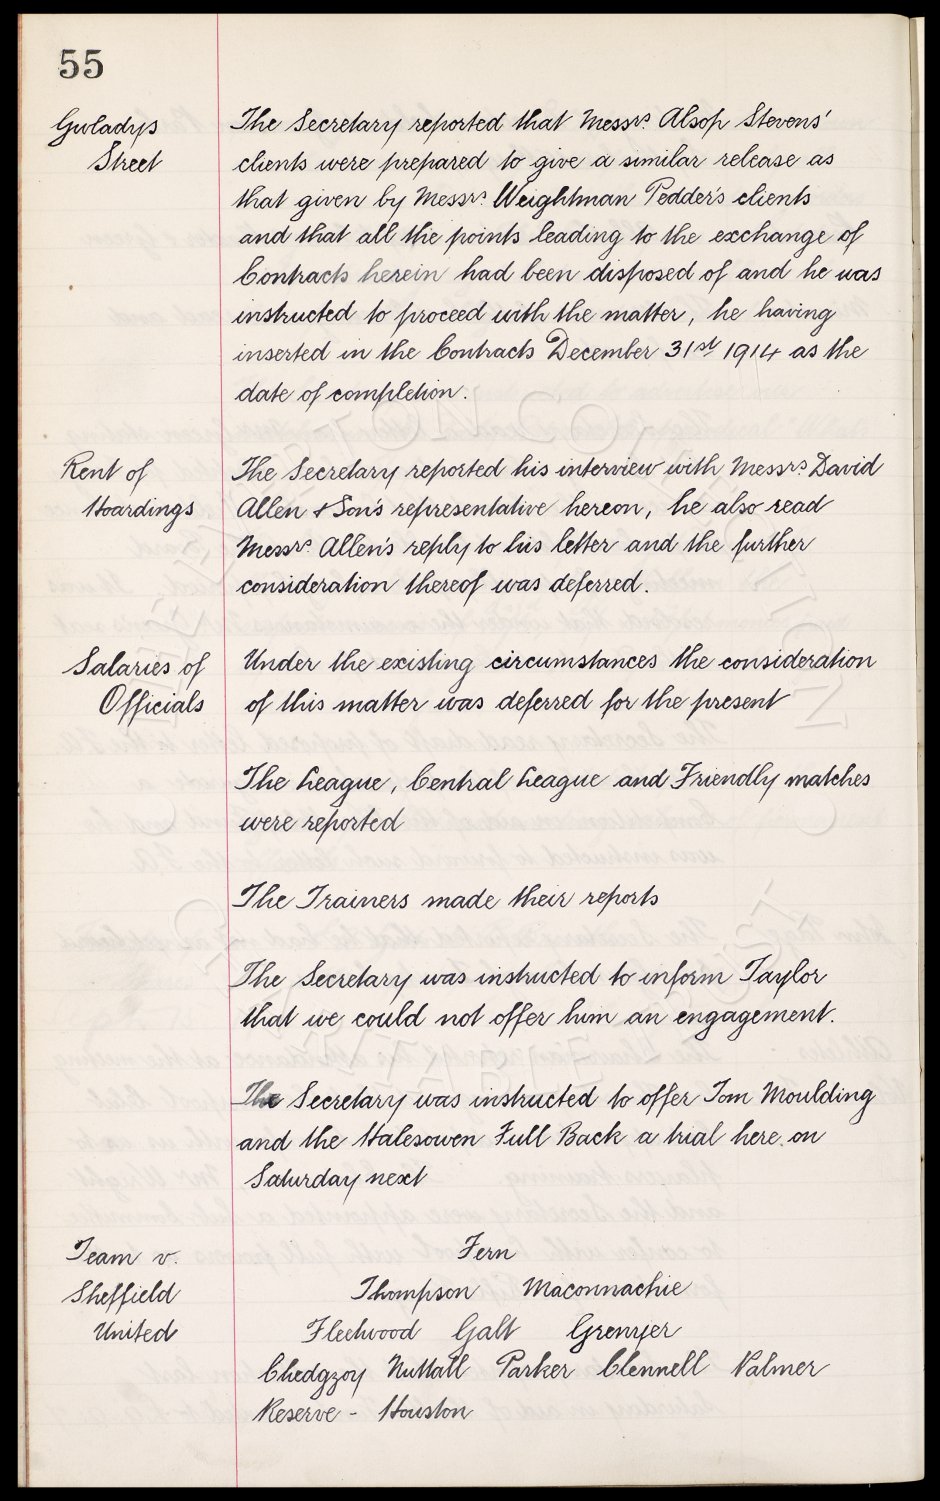 55
Gwladys
Street
The Secretary reported that Messrs. Alsop Stevens'
clients were prepared to give a similar release as
that given by Messrs. Weightman Pedder's clients
and that all the points leading to the exchange of
Contracts herein had been disposed of and he was
instructed to proceed with the matter, he having
inserted in the Contracts December 31st 1914 as the
date of completion.
Rent of
Hoardings
The Secretary reported his interview with Messrs. David
Allen & Son's representative hereon, he also read
Messrs Allen's reply to his letter and the further
consideration thereof was deferred.
Salaries of
Officials
Under the existing circumstances the consideration
of this matter was deferred for the present
The League, Central League and Friendly matches
were reported
The Trainers made their reports
The Secretary was instructed to inform Taylor
that we could not offer him an engagement.
The Secretary was instructed to offer Tom Moulding
and the Halesowen Full Back a trial here on
Saturday next
Team v.
Sheffield
United
Fern
Thompson Maconnachie
Fleetwood Galt Grenyer
Chedgzoy Nuttall Parker Clennell Palmer
Reserve - Houston